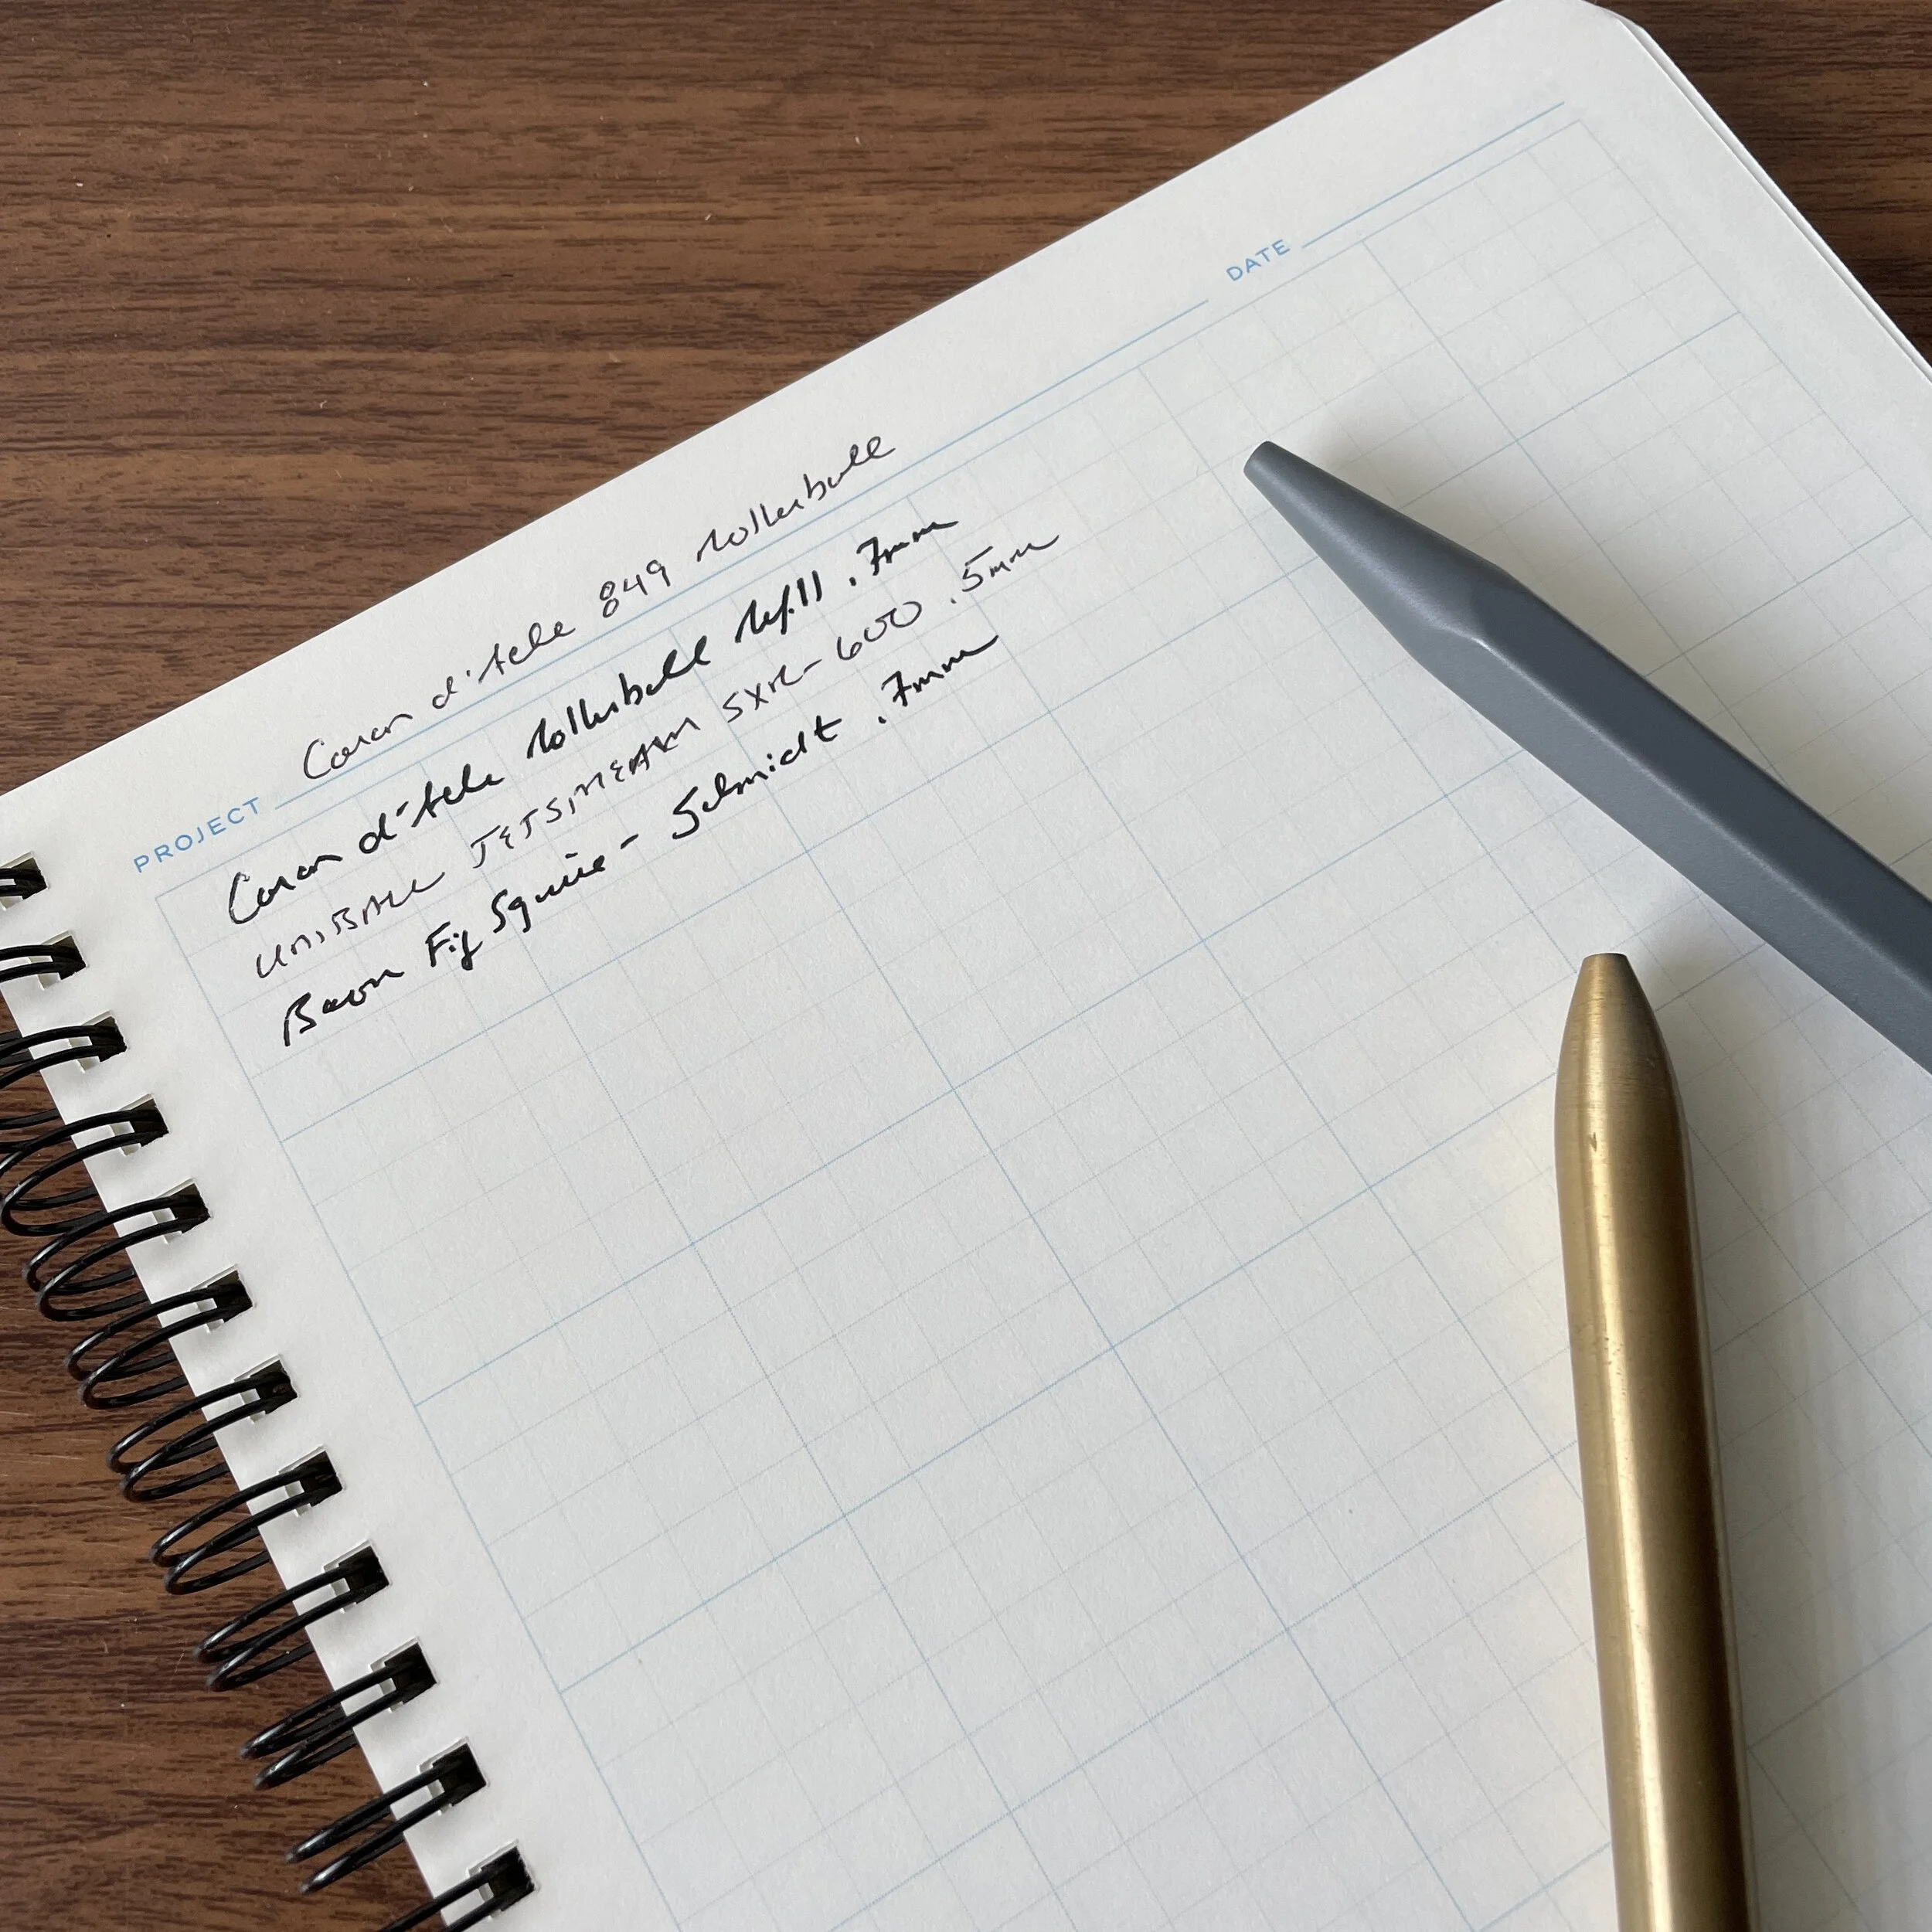 PROJECT Caran d'Ache 849 Rollerball DATE
Caran d'Ache Rollerball Refill .7mm
UNIBALL JETSTREAM SXR-600 .5mm
Baron Fig Squire - Schmidt .7mm